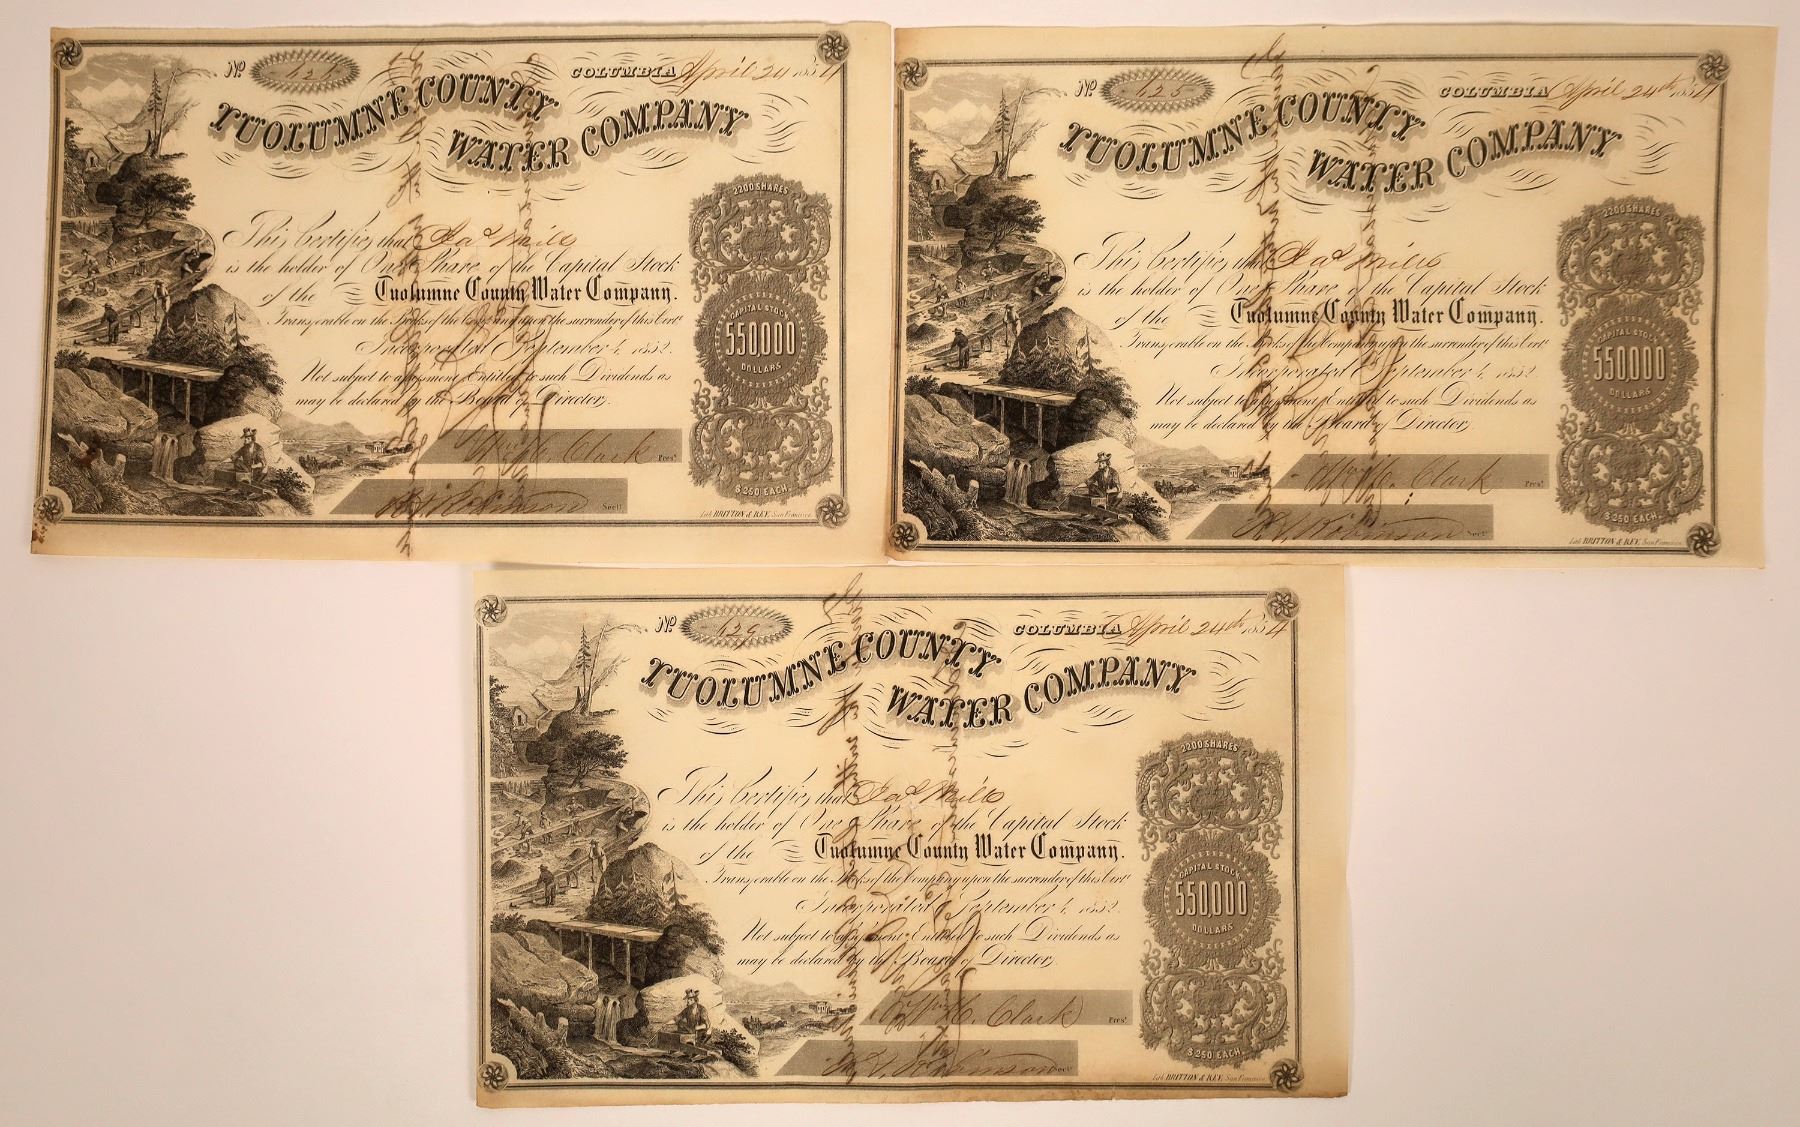 Nº 626 COLUMBIA April 24 1854
TUOLUMNE COUNTY
WATER COMPANY
This Certifies that Jas Mills
is the holder of One Share of the Capital Stock
of the Tuolumne County Water Company.
Transferable on the Books of the Company upon the surrender of this Certe
Incorporated September 4, 1852.
Not subject to assessment Entitled to such Dividends as
may be declared by the Board of Directors.
Wm H. Clark Prest
Robinson Secty
2200 SHARES
CAPITAL STOCK
550,000
DOLLARS
$250 EACH
Lith BRITTON & REY, San Francisco
Nº 625 COLUMBIA April 24th 1854
TUOLUMNE COUNTY
WATER COMPANY
This Certifies that Jas Mills
is the holder of One Share of the Capital Stock
of the Tuolumne County Water Company.
Transferable on the Books of the Company upon the surrender of this Certe
Incorporated September 4, 1852.
Not subject to assessment Entitled to such Dividends as
may be declared by the Board of Directors.
Clark Prest
Robinson Secty
2200 SHARES
CAPITAL STOCK
550,000
DOLLARS
$250 EACH
Lith BRITTON & REY, San Francisco
Nº 629 COLUMBIA April 24th 1854
TUOLUMNE COUNTY
WATER COMPANY
This Certifies that Jas Mills
is the holder of One Share of the Capital Stock
of the Tuolumne County Water Company.
Transferable on the Books of the Company upon the surrender of this Certe
Incorporated September 4, 1852.
Not subject to assessment Entitled to such Dividends as
may be declared by the Board of Directors.
Wm H. Clark Prest
Robinson Secty
2200 SHARES
CAPITAL STOCK
550,000
DOLLARS
$250 EACH
Lith BRITTON & REY, San Francisco